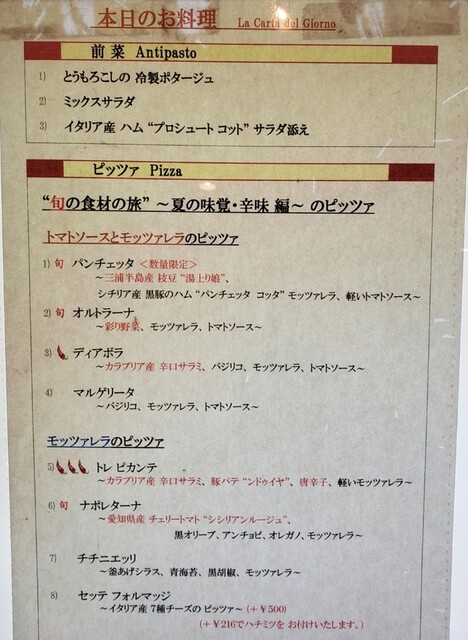 本日のお料理 La Carta del Giorno
前菜 Antipasto
1) とうもろこしの 冷製ポタージュ
2) ミックスサラダ
3) イタリア産 ハム “プロシュート コット” サラダ添え
ピッツァ Pizza
“旬の食材の旅” ～夏の味覚・辛味 編～ のピッツァ
トマトソースとモッツァレラのピッツァ
1) 旬 パンチェッタ ＜数量限定＞
～三浦半島産 枝豆 “湯上り娘”、
シチリア産 黒豚のハム “パンチェッタ コッタ” モッツァレラ、軽いトマトソース～
2) 旬 オルトラーナ
～彩り野菜、モッツァレラ、トマトソース～
3) ディアボラ
～カラブリア産 辛口サラミ、バジリコ、モッツァレラ、トマトソース～
4) マルゲリータ
～バジリコ、モッツァレラ、トマトソース～
モッツァレラのピッツァ
5) トレ ピカンテ
～カラブリア産 辛口サラミ、豚パテ “ンドゥイヤ”、唐辛子、軽いモッツァレラ～
6) 旬 ナポレターナ
～愛知県産 チェリートマト “シシリアンルージュ”、
黒オリーブ、アンチョビ、オレガノ、モッツァレラ～
7) チチニエッリ
～釜あげシラス、青海苔、黒胡椒、モッツァレラ～
8) セッテ フォルマッジ
～イタリア産 7種チーズの ピッツァ～ (+￥500)
(+￥216でハチミツを お付けいたします。)